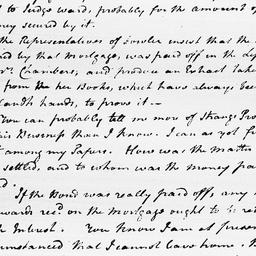 to Judge Ward, probably for the amount of
ney secured by it.
the Representatives of Fowler insist that the
ed by that Mortgage, was paid off in the Life
Mrs. Chambers, and produce an Extract take
from the her Books, which have always been
hands, to prove it —
You can probably tell me more of
Business than I know. I can as yet fi
t among my Papers. How was the matter
settled, and to whom was the money pai
d.
If the Bond was really paid off, any
wards recd. on the Mortgage ought to be
th Interest. You know I am at present
cumstanced that I cannot leave home.